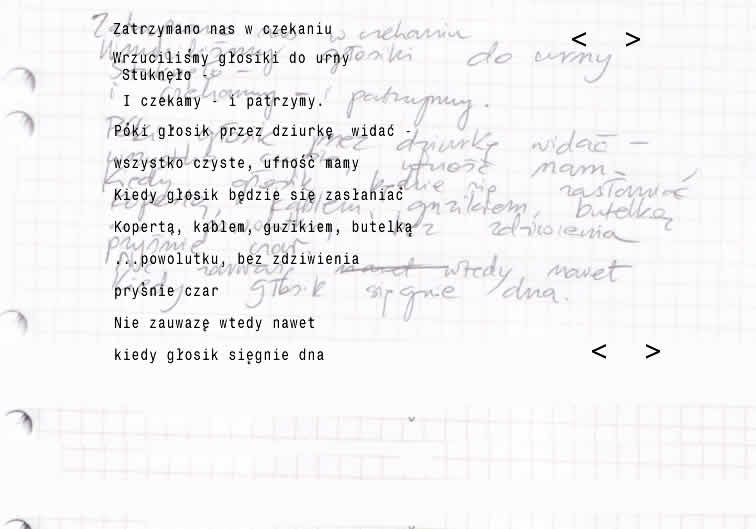 Zatrzymano nas w czekaniu
< >
Wrzuciliśmy głosiki do urny
Stuknęło -
I czekamy - i patrzymy.
Póki głosik przez dziurkę widać -
wszystko czyste, ufność mamy
Kiedy głosik będzie się zasłaniać
Kopertą, kablem, guzikiem, butelką
...powolutku, bez zdziwienia
pryśnie czar
Nie zauważę wtedy nawet
kiedy głosik sięgnie dna
< >